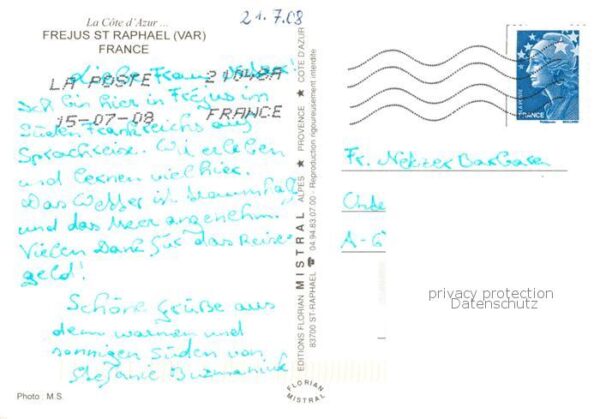 21.7.08
La Côte d'Azur ...
FREJUS ST RAPHAEL (VAR)
FRANCE
LA POSTE 21048A
15-07-08 FRANCE
Liebe Frau !
Ich bin hier in Frejus im
Süden Frankreichs auf
Sprachreise. Wir erleben
und lernen viel hier.
Das Wetter ist traumhaft
und das Meer angenehm.
Vielen Dank für das Reise-
geld!
Schöne Grüße aus
dem warmen und
sonnigen Süden von
Stefanie
Photo : M.S.
EDITIONS FLORIAN MISTRAL ALPES ★ PROVENCE ★ COTE D'AZUR
83700 ST-RAPHAEL ☎ 04.94.83.07.00 - Reproduction rigoureusement interdite
FLORIAN
MISTRAL
FRANCE
Fr. Barbara
A-6
privacy protection
Datenschutz